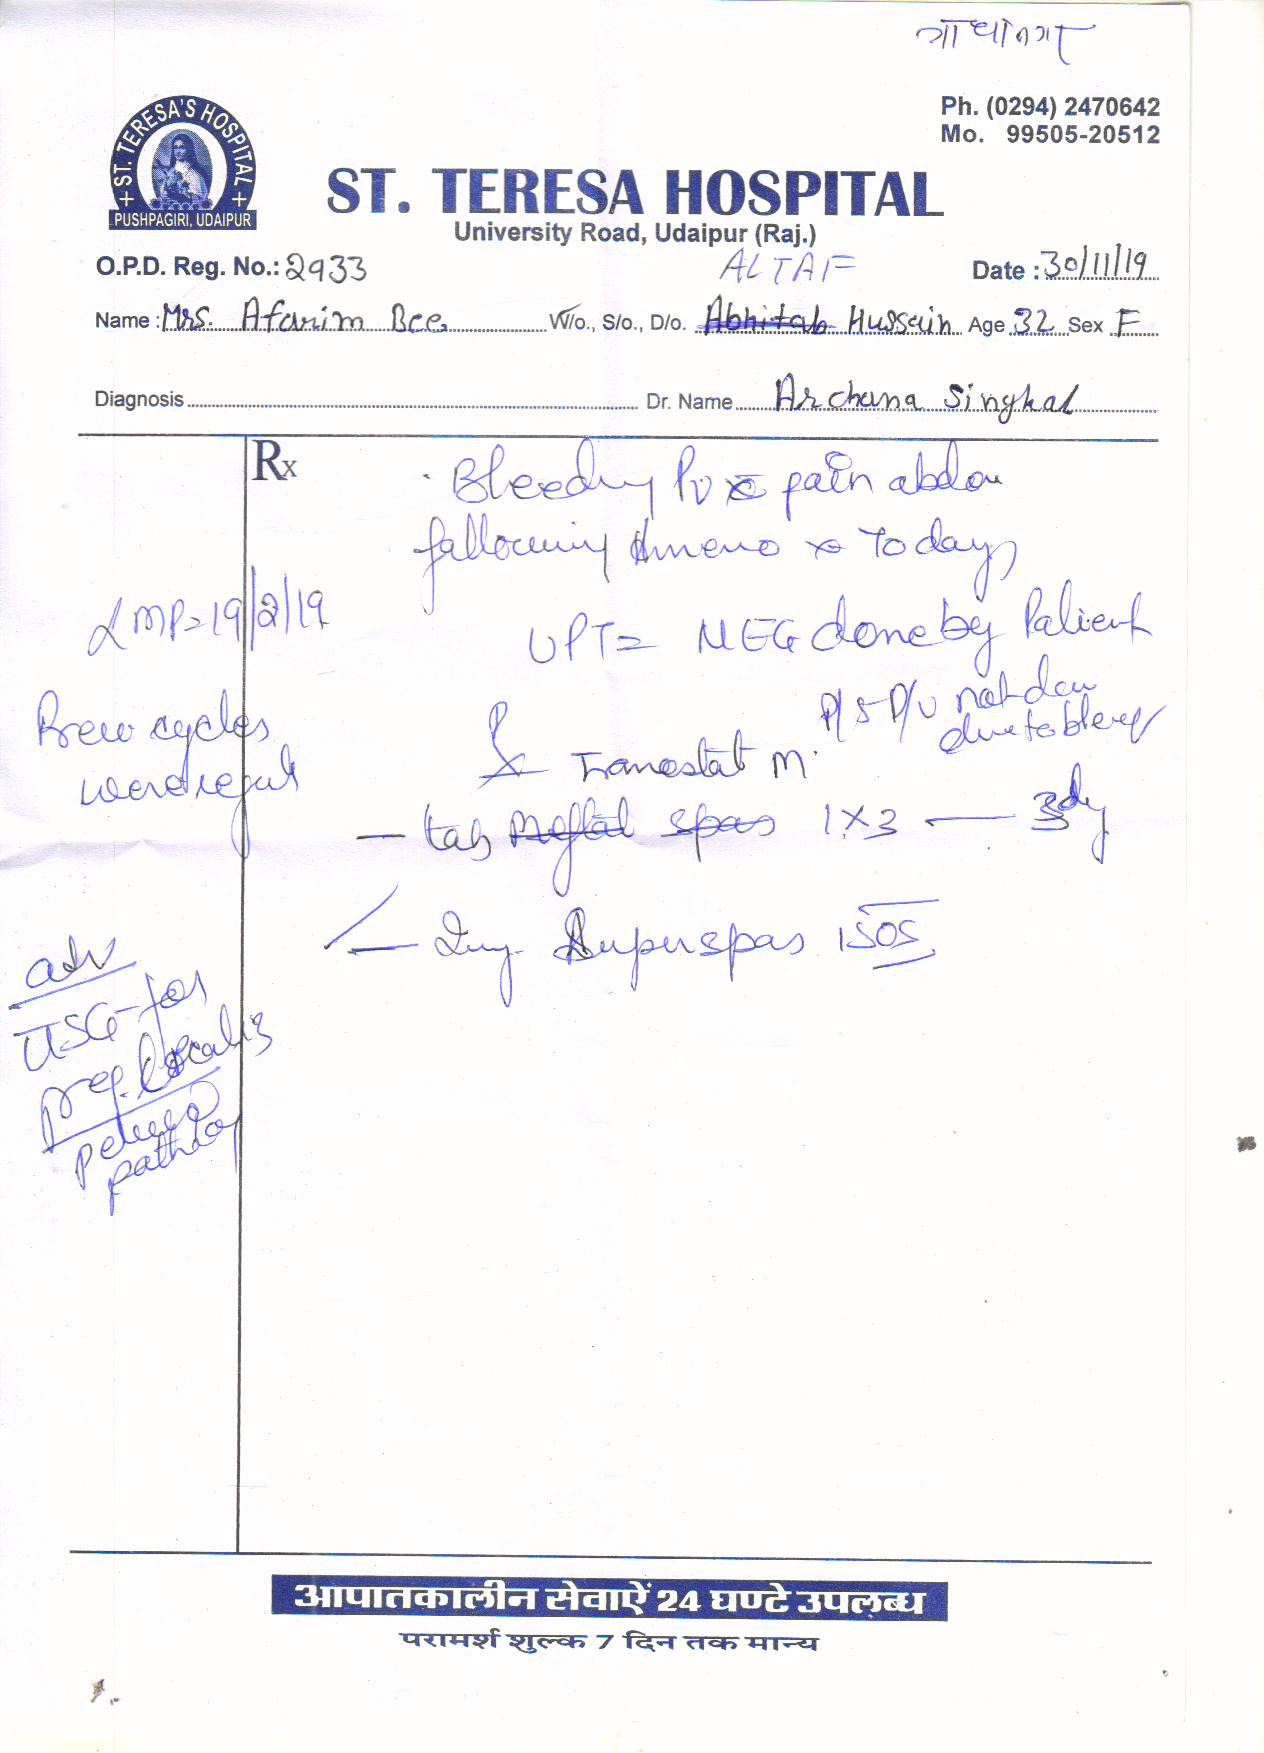 गांधीनगर
Ph. (0294) 2470642
Mo. 99505-20512
ST. TERESA'S HOSPITAL
PUSHPAGIRI, UDAIPUR
ST. TERESA HOSPITAL
University Road, Udaipur (Raj.)
O.P.D. Reg. No.: 2933 ALTAF Date : 30/11/19
Name : Mrs. Afarim Bee W/o., S/o., D/o. Abhitab Hussain Age 32 Sex F
Diagnosis Dr. Name Archana Singhal
Rx
Bleeding PV c pain abdo
following Ameno x Today
LMP=19/2/19
UPT= NEG done by Patient
P/S-P/V not
due to bleep
Prev cycles
were regul
Tranostat M
- tab Meftal spas 1x3 — 3dy
- Inj. Superspas 1 SOS
adv
USG-for
preg. localis
pelvic
patholo
आपातकालीन सेवाऐं 24 घण्टे उपलब्ध
परामर्श शुल्क 7 दिन तक मान्य